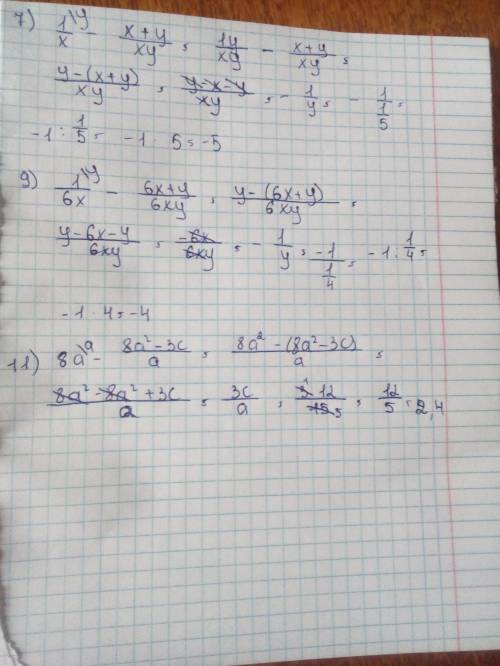 7) 1\y/x - x+y/xy = 1y/xy - x+y/xy =
y-(x+y)/xy = y-x-y/xy = -1/y = -1/(1/5) =
-1 : 1/5 = -1 · 5 = -5
9) 1\y/6x - 6x+y/6xy = y-(6x+y)/6xy =
y-6x-y/6xy = -6x/6xy = -1/y = -1/(1/4) = -1 : 1/4 =
-1 · 4 = -4
11) 8a\a - 8a²-3c/a = 8a²-(8a²-3c)/a =
8a²-8a²+3c/a = 3c/a = 12/5 = 2,4